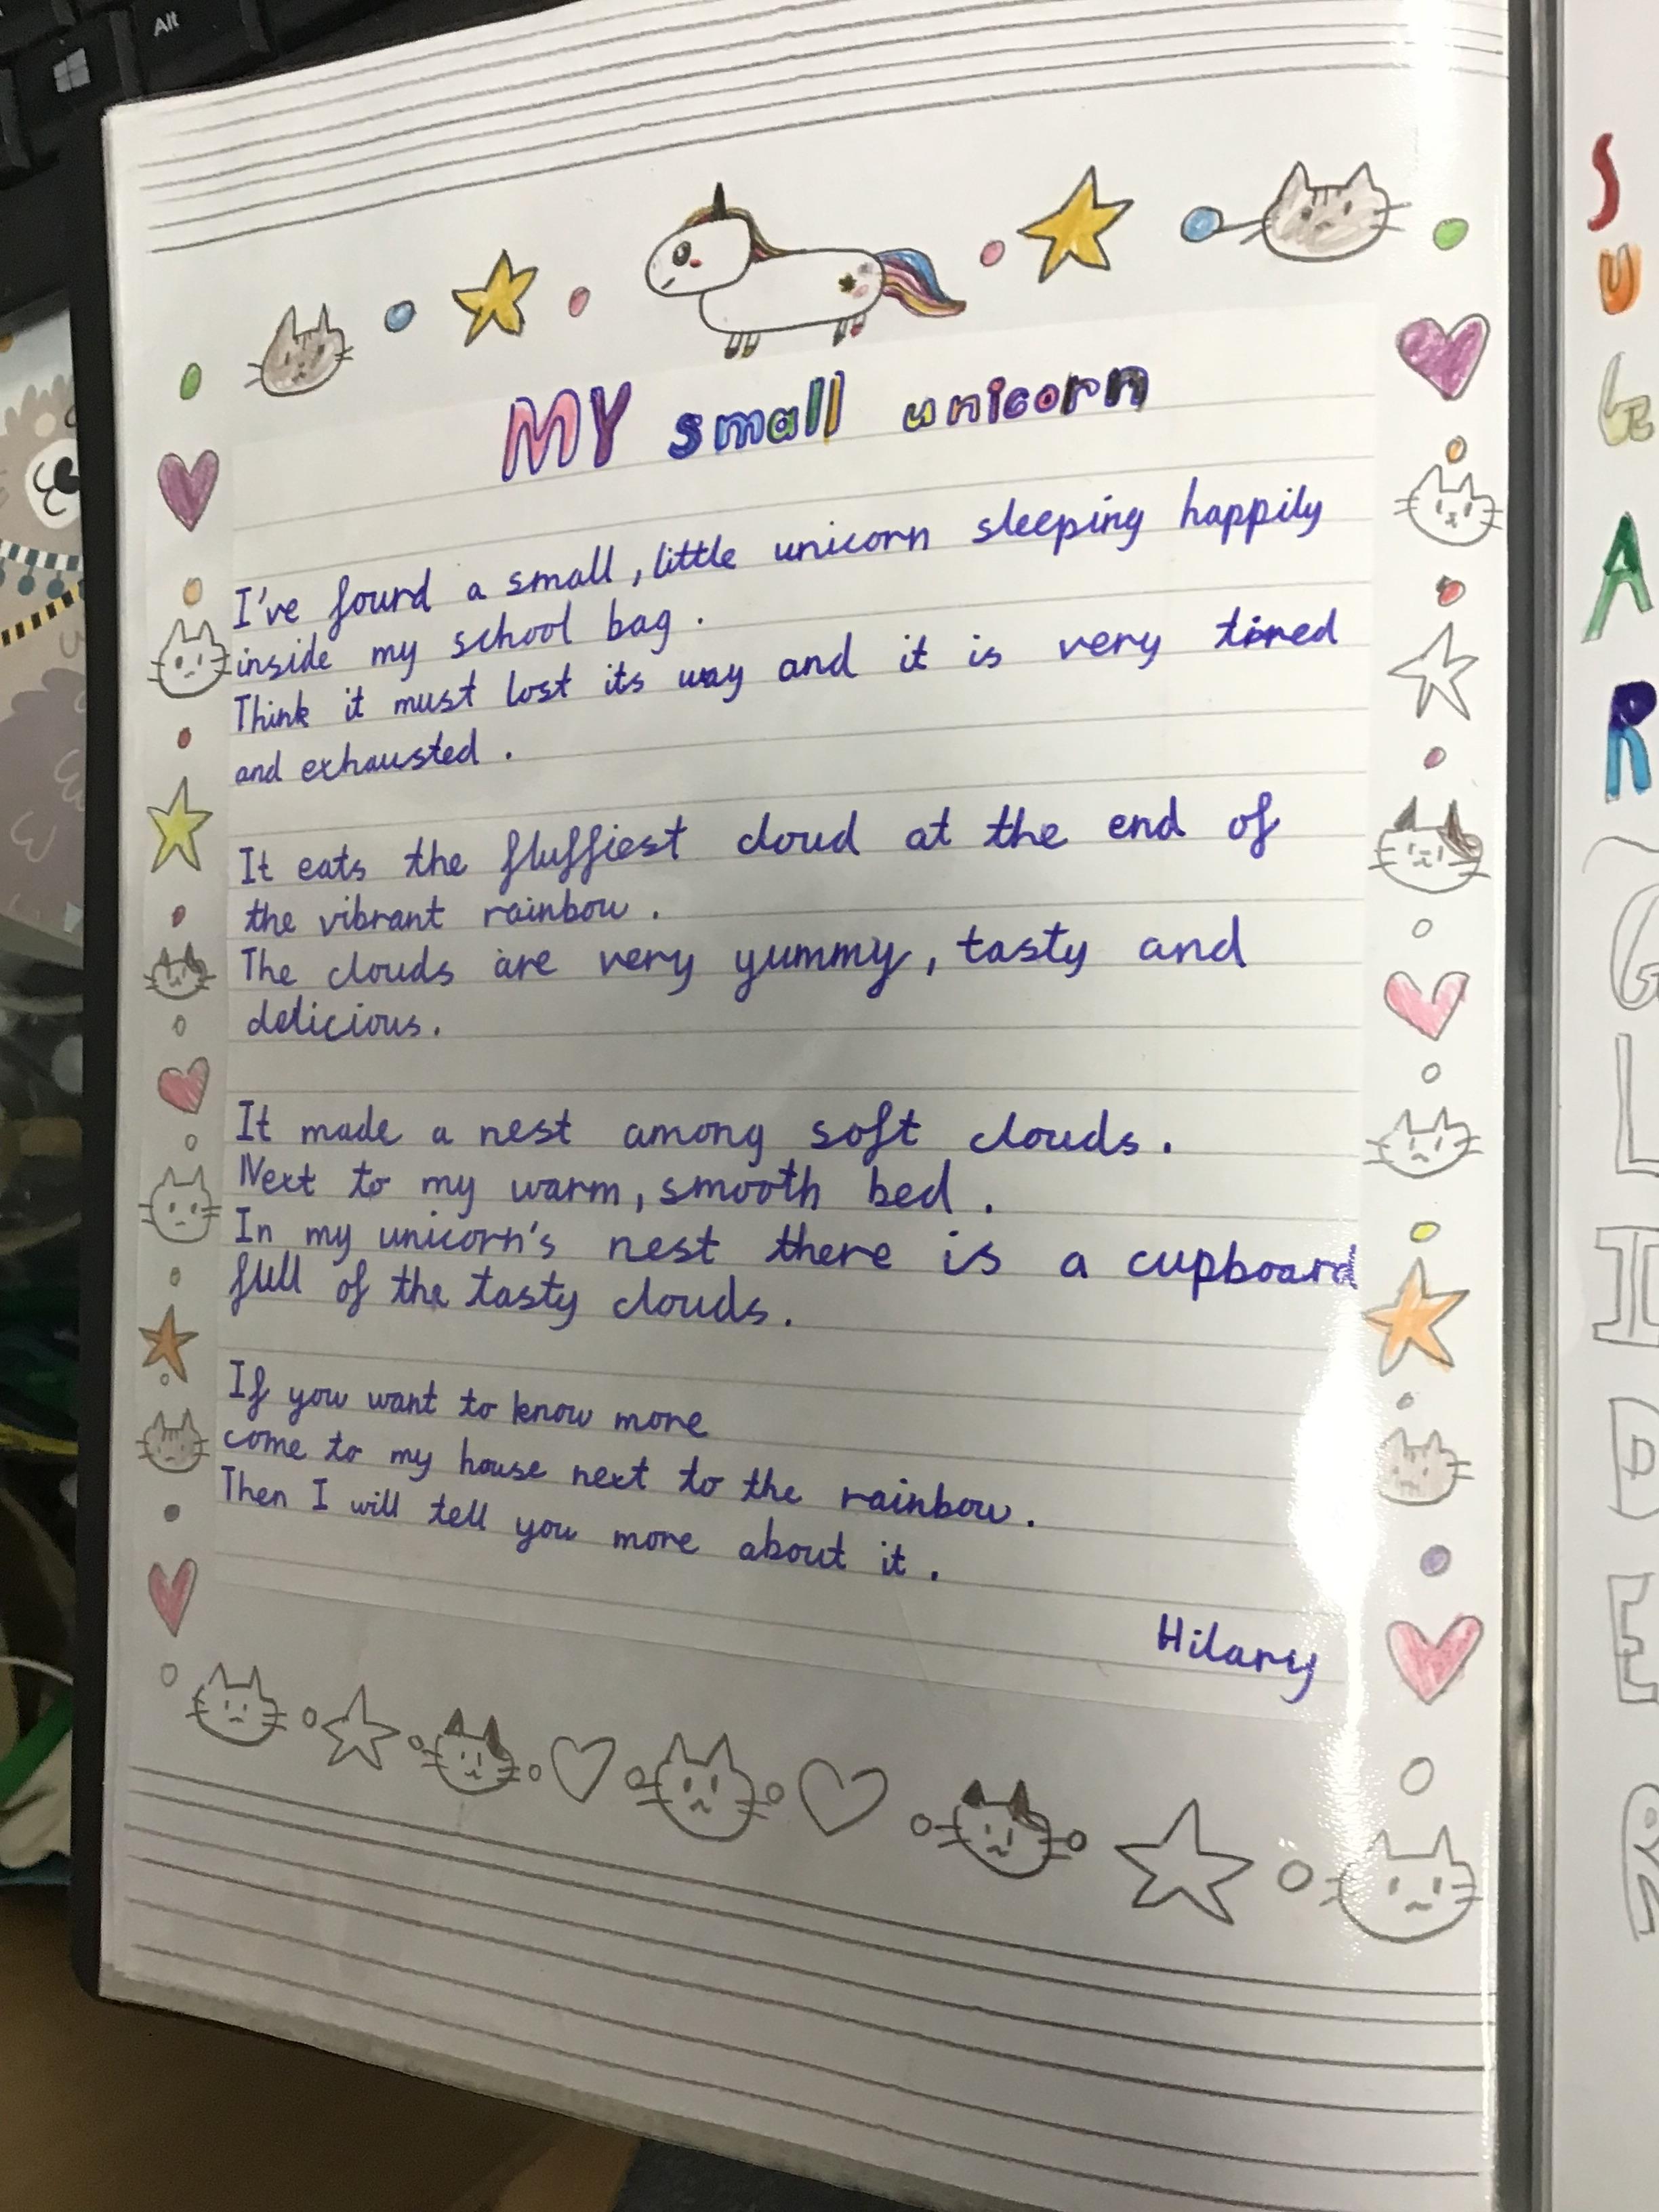 Alt
MY small unicorn
I've found a small, little unicorn sleeping happily
inside my school bag.
Think it must lost its way and it is very tired
and exhausted.
It eats the fluffiest cloud at the end of
the vibrant rainbow.
The clouds are very yummy, tasty and
delicious.
It made a nest among soft clouds.
Next to my warm, smooth bed.
In my unicorn's nest there is a cupboard
full of the tasty clouds.
If you want to know more
come to my house next to the rainbow.
Then I will tell you more about it.
Hilary
SUGAR
GLIDER